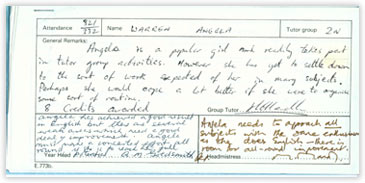 Attendance 321/332 Name WARREN ANGELA Tutor group 2N
General Remarks:
Angela is a popular girl and readily takes part
in tutor group activities. However she has yet to settle down
to the sort of work expected of her in many subjects.
Perhaps she would cope a lot better if she were to organise
some sort of routine.
8 Credits awarded Group Tutor
Angela has achieved a good result
in English but she has several
weak areas which need a good
deal of improvement. Angela
must make a concerted effort all
round
Year Head
Angela needs to approach all
subjects with the same enthusiasm
as she does English - there is
room for all-round improvement.
Headmistress
E 773b